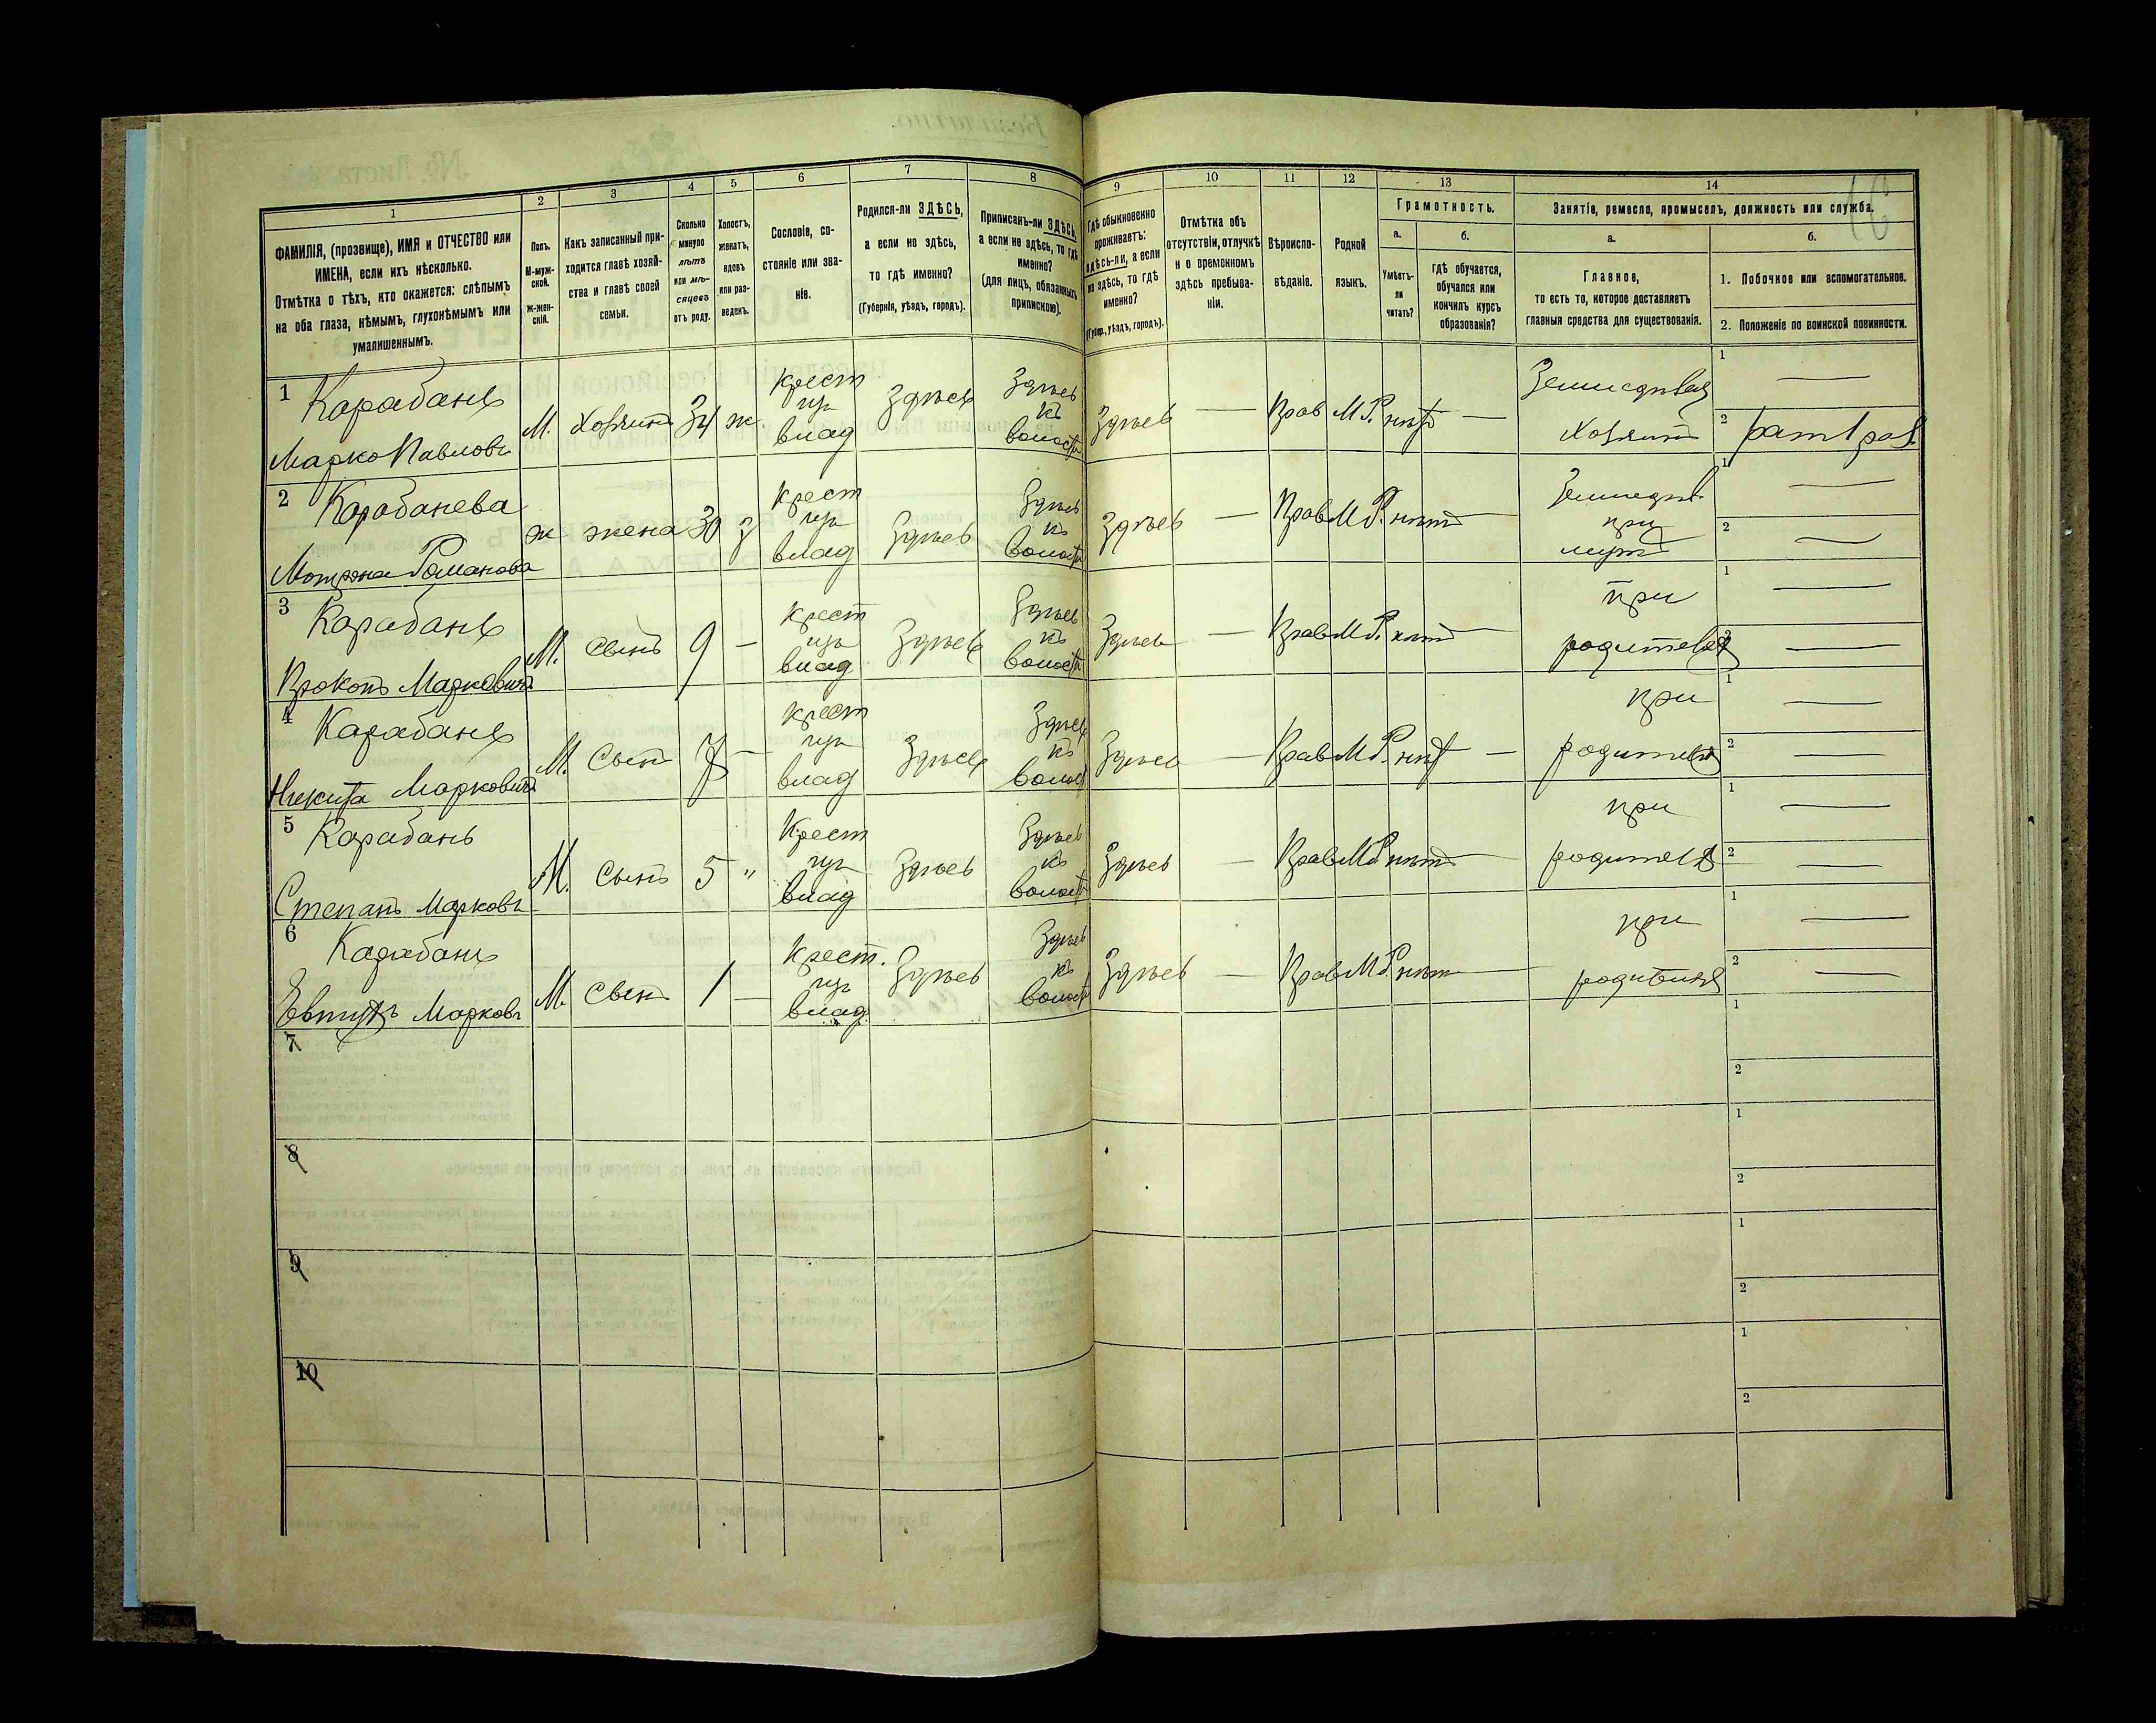 1 2 3 4 5 6 7 8 9 10 11 12 13 14
ФАМИЛІЯ, (прозвище), ИМЯ и ОТЧЕСТВО или
ИМЕНА, если ихъ нѣсколько.
Отмѣтка о тѣхъ, кто окажется: слѣпымъ
на оба глаза, нѣмымъ, глухонѣмымъ или
умалишеннымъ.
Полъ.
М-муж-
ской.
Ж-жен-
скій.
Какъ записанный при-
ходится главѣ хозяй-
ства и главѣ своей
семьи.
Сколько
минуло
лѣтъ
или мѣ-
сяцевъ
отъ роду.
Холостъ,
женатъ,
вдовъ
или раз-
веденъ.
Сословіе, со-
стояніе или зва-
ніе.
Родился-ли ЗДѢСЬ,
а если не здѣсь,
то гдѣ именно?
(Губернія, уѣздъ, городъ).
Приписанъ-ли ЗДѢСЬ,
а если не здѣсь, то гдѣ
именно?
(для лицъ, обязанныхъ
припискою).
Гдѣ обыкновенно
проживаетъ:
здѣсь-ли, а если
не здѣсь, то гдѣ
именно?
(Губер., уѣздъ, городъ).
Отмѣтка объ
отсутствіи, отлучкѣ
и о временномъ
здѣсь пребыва-
ніи.
Вѣроиспо-
вѣданіе.
Родной
языкъ.
Грамотность.
а.
Умѣетъ-
ли
читать?
б.
гдѣ обучается,
обучался или
кончилъ курсъ
образованія?
Занятіе, ремесло, промыселъ, должность или служба.
а.
Главное,
то есть то, которое доставляетъ
главныя средства для существованія.
б.
1. Побочное или вспомогательное.
2. Положеніе по воинской повинности.
1 Карабань
Марко Павловъ
М. Хозяинъ 34 ж.
крест
изъ
влад
Здѣсь
Здѣсь
къ
волости
Здѣсь — Прав М.Р. нѣт —
Хозяинъ
1 —
2
2 Карабанева
Мотрона Романова
ж жена 30 з
крест
изъ
влад
Здѣсь
Здѣсь
къ
волости
Здѣсь — Прав М.Р. нѣтъ —
при
1 —
2 —
3 Карабань
Прокопъ Марковичъ
М. Сынъ 9 —
крест
изъ
влад
Здѣсь
Здѣсь
къ
волости
Здѣсь — Прав М.Р. нѣтъ —
при
родителях
1 —
2 —
4 Карабань
Никита Марковичъ
М. Сынъ 7 —
крест
изъ
влад
Здѣсь
Здѣсь
къ
волост
Здѣсь — Прав М.Р. нѣт —
при
родителях
1 —
2 —
5 Карабань
Степанъ Марковъ
М. Сынъ 5 "
Крест
изъ
влад
Здѣсь
Здѣсь
къ
волости
Здѣсь — Прав М.Р. нѣтъ —
при
родителях
1 —
2 —
6 Карабань
Марковъ
М. Сынъ 1 —
Крест.
изъ
влад
Здѣсь
Здѣсь
къ
волости
Здѣсь — Прав М.Р. нѣт —
при
родителях
1 —
2 —
7
1
2
8
1
2
9
1
2
10
1
2